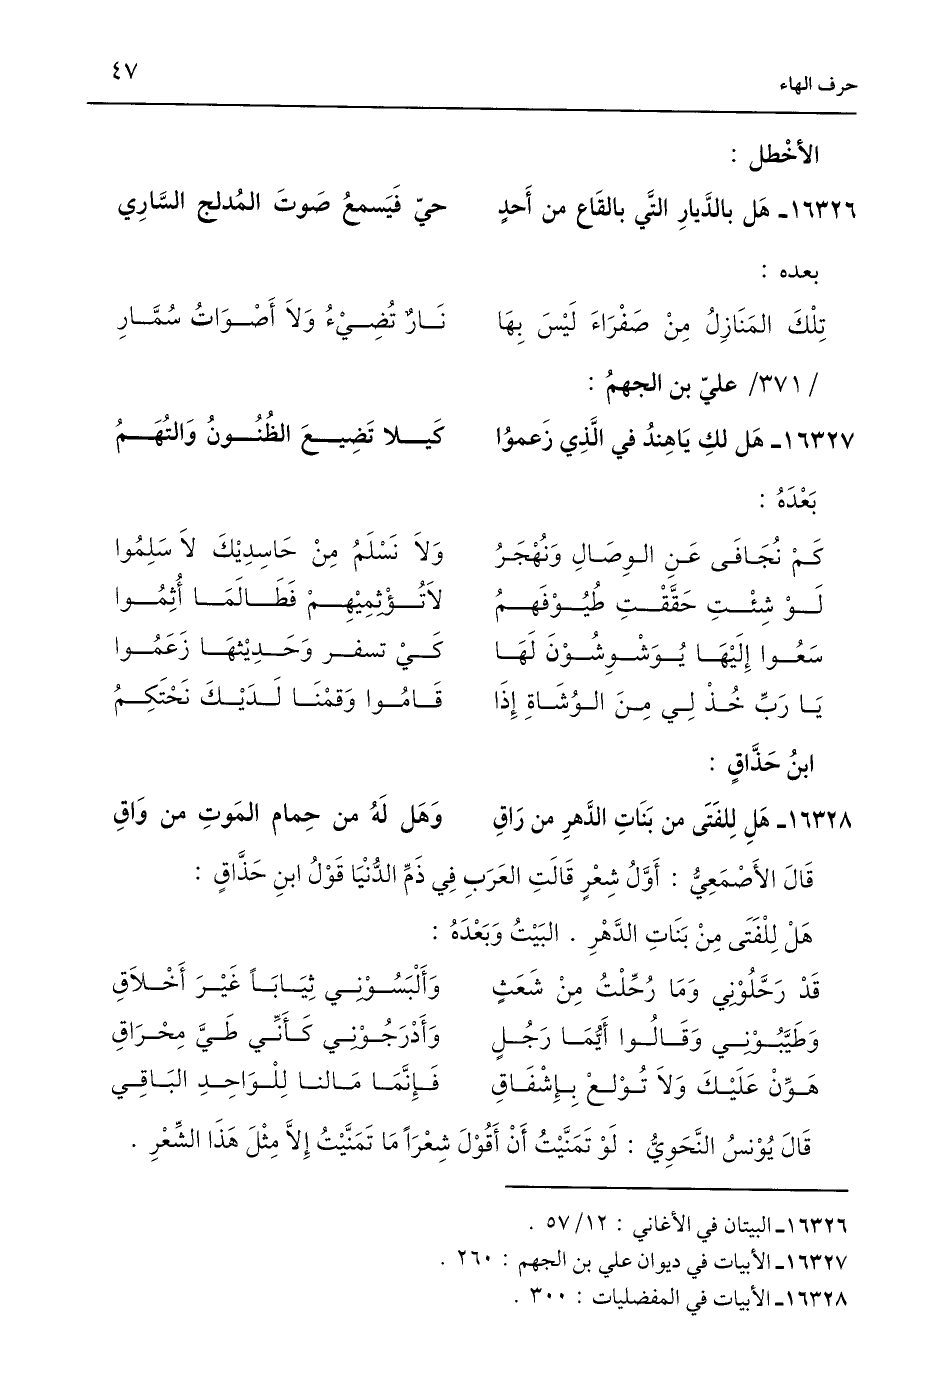 حرف الهاء ٤٧
الأخْطل :
١٦٣٢٦ـ هَل بالدَّيارِ التَّي بالقَاع من أَحدٍ حيّ فَيَسمعُ صَوتَ المُدلج السَّارِي
بعده :
تِلْكَ المَنَازِلُ مِنْ صَفْرَاءَ لَيْسَ بِهَا نَـارٌ تُضِـيْءُ وَلاَ أَصْـوَاتُ سُمَّـارِ
/ ٣٧١/ عليّ بن الجهمُ :
١٦٣٢٧ـ هَل لكِ يَاهِندُ في الَّذِي زَعموُا كَيـلا تَضِيـعَ الظُنُـونُ وَالتُهَـمُ
بَعْدَهُ :
كَمْ نُجَافَى عَـنِ الـوِصَـالِ وَنُهْجَـرُ وَلاَ نَسْلَمُ مِنْ حَاسِدِيْكَ لاَ سَلِمُوا
لَـوْ شِئْـتِ حَقَّقْـتِ طُيُـوْفَهِـمُ لاَتُـؤْثِمِيْهِـمْ فَطَـالَمَـا أَثِمُـوا
سَعُـوا إِلَيْهَـا يُـوَشْـوِشُـوْنَ لَهَـا كَـيْ تسفـر وَحَـدِيْثِهَـا زَعَمُـوا
يَـا رَبِّ خُـذْ لِـي مِـنَ الـوُشَـاةِ إِذَا قَـامُـوا وَقمْنَـا لَـدَيْـكَ نَحْتَكِـمُ
ابنُ حَذَّاقٍ :
١٦٣٢٨ـ هَلِ لِلفَتَى من بَنَاتِ الدَّهرِ من رَاقِ وَهَل لَهُ من حِمام المَوتِ من وَاقِ
قَالَ الأَصْمَعِيُّ : أَوَّلُ شِعْرٍ قَالَتِ العَرَبِ فِي ذَمِّ الدُّنْيَا قَوْلُ ابنِ حَذَّاقٍ :
هَلْ لِلْفَتَى مِنْ بَنَاتِ الدَّهْرِ . البَيْتُ وَبَعْدَهُ :
قَدْ رَحَّلُوْنِي وَمَا رُحِّلْتُ مِنْ شَعَثٍ وَأَلْبَسُـوْنِـي ثِيَـابَـاً غَيْـرَ أَخْـلاَقِ
وَطَيَّبُـوْنِـي وَقَـالُـوا أَيُّمَـا رَجُـلٍ وَأَدْرَجُـوْنِـي كَـأَنِّـي طَـيَّ مِخْـرَاقِ
هَـوِّنْ عَلَيْـكَ وَلاَ تُـوْلـعْ بِـإِشْفَـاقِ فَـإِنَّمَـا مَـالنـا لِلْـوَاحِـدِ البَـاقِـي
قَالَ يُوْنسُ النَّحَوِيُّ : لَوْ تَمَنَّيْتُ أَنْ أَقُوْلَ شِعْرَاً مَا تَمَنَّيْتُ إِلاَّ مِثْلَ هَذَا الشِّعْرِ .
١٦٣٢٦ـ البيتان في الأغاني : ٥٧/١٢ .
١٦٣٢٧ـ الأبيات في ديوان علي بن الجهم : ٢٦٠ .
١٦٣٢٨ـ الأبيات في المفضليات : ٣٠٠ .